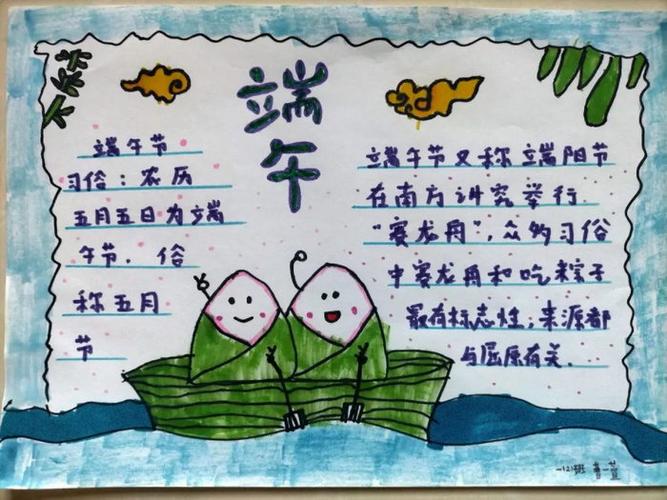 端午
端午节
习俗：农历
五月五日为端
午节，俗
称五月
节
端午节又称端阳节
在南方讲究举行
“赛龙舟”，众多习俗
中赛龙舟和吃粽子
最有标志性，来源都
与屈原有关.
一(2)班